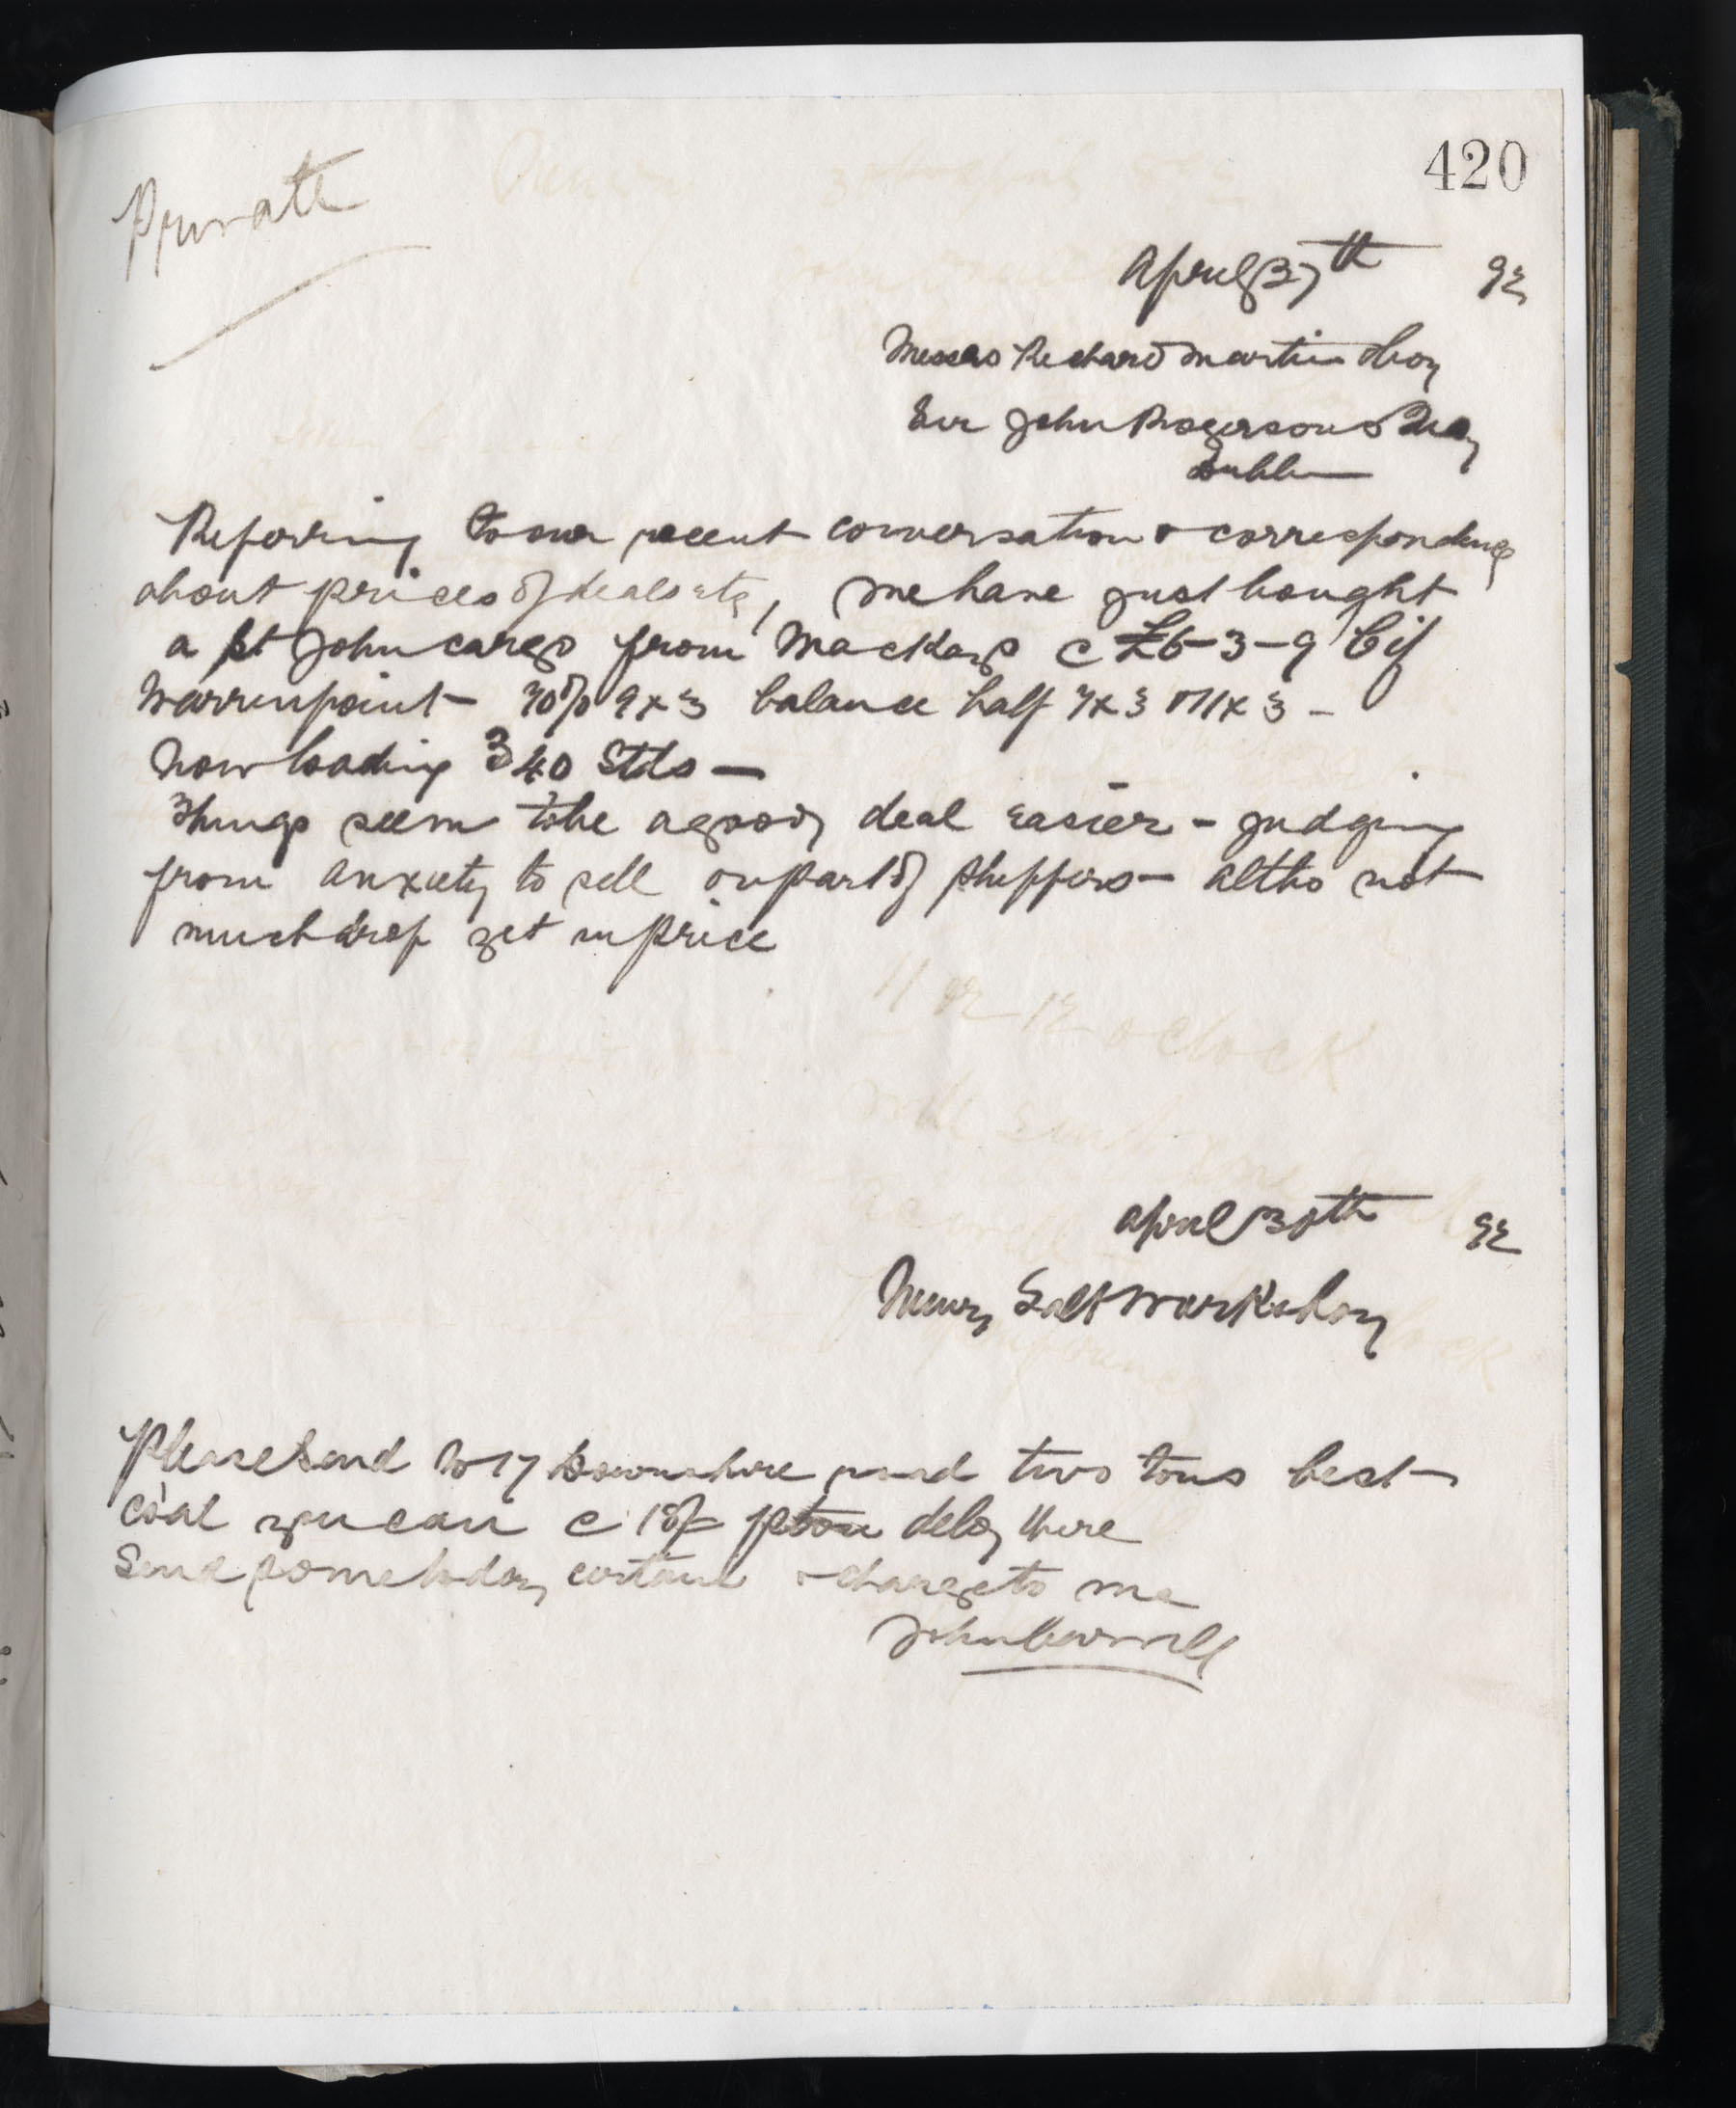 420
Private
April 27th 92
Messrs Richard Martin & Coy
Sir John Rogersons Quay
Dublin
Referring to our recent conversation & correspondence
about prices of deals etc, we have just bought
a St John cargo from Mackay @ £6-3-9 Cif
Warrenpoint - 70% 9x3 balance half 7x3 & 11x3 -
Now loading 340 Stds -
Things seem to be a good deal easier - judging
from anxiety to sell on part of shippers - altho not
much drop yet in price
11 or 12 oclock
April 30th 92
Newry Salt Works Coy
Please send to 17 Downshire road two tons best
coal you can @ 18/= p ton dely there
Send some today certain & charge to me